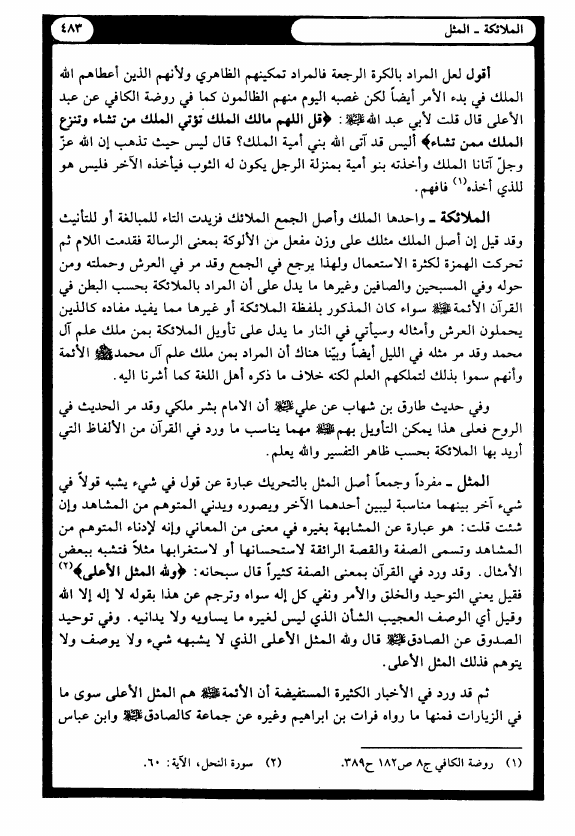 الملائكة ـ المثل
٤٨٣
أقول لعل المراد بالكرة الرجعة فالمراد تمكينهم الظاهري ولأنهم الذين أعطاهم الله
الملك في بدء الأمر أيضاً لكن غصبه اليوم منهم الظالمون كما في روضة الكافي عن عبد
الأعلى قال قلت لأبي عبد الله ﷺ: ﴿قل اللهم مالك الملك تؤتي الملك من تشاء وتنزع
الملك ممن تشاء﴾ أليس قد آتى الله بني أمية الملك؟ قال ليس حيث تذهب إن الله عزّ
وجلّ آتانا الملك وأخذته بنو أمية بمنزلة الرجل يكون له الثوب فيأخذه الآخر فليس هو
للذي أخذه(١) فافهم.
الملائكة ـ واحدها الملك وأصل الجمع الملائك فزيدت التاء للمبالغة أو للتأنيث
وقد قيل إن أصل الملك مثلك على وزن مفعل من الألوكة بمعنى الرسالة فقدمت اللام ثم
تحركت الهمزة لكثرة الاستعمال ولهذا يرجع في الجمع وقد مر في العرش وحملته ومن
حوله وفي المسبحين والصافين وغيرها ما يدل على أن المراد بالملائكة بحسب البطن في
القرآن الأئمة سواء كان المذكور بلفظة الملائكة أو غيرها مما يفيد مفاده كالذين
يحملون العرش وأمثاله وسيأتي في النار ما يدل على تأويل الملائكة بمن ملك علم آل
محمد وقد مر مثله في الليل أيضاً وبيّنا هناك أن المراد بمن ملك علم آل محمد الأئمة
وأنهم سموا بذلك لتملكهم العلم لكنه خلاف ما ذكره أهل اللغة كما أشرنا اليه.
وفي حديث طارق بن شهاب عن علي أن الامام بشر ملكي وقد مر الحديث في
الروح فعلى هذا يمكن التأويل بهم مهما يناسب ما ورد في القرآن من الألفاظ التي
أريد بها الملائكة بحسب ظاهر التفسير والله يعلم.
المثل ـ مفرداً وجمعاً أصل المثل بالتحريك عبارة عن قول في شيء يشبه قولاً في
شيء آخر بينهما مناسبة ليبين أحدهما الآخر ويصوره ويدني المتوهم من المشاهد وإن
شئت قلت: هو عبارة عن المشابهة بغيره في معنى من المعاني وإنه لإدناء المتوهم من
المشاهد وتسمى الصفة والقصة الرائقة لاستحسانها أو لاستغرابها مثلاً فتشبه ببعض
الأمثال. وقد ورد في القرآن بمعنى الصفة كثيراً قال سبحانه: ﴿ولله المثل الأعلى﴾(٢)
فقيل يعني التوحيد والخلق والأمر ونفي كل إله سواه وترجم عن هذا بقوله لا إله إلا الله
وقيل أي الوصف العجيب الشأن الذي ليس لغيره ما يساويه ولا يدانيه. وفي توحيد
الصدوق عن الصادق قال ولله المثل الأعلى الذي لا يشبهه شيء ولا يوصف ولا
يتوهم فذلك المثل الأعلى.
ثم قد ورد في الأخبار الكثيرة المستفيضة أن الأئمة هم المثل الأعلى سوى ما
في الزيارات فمنها ما رواه فرات بن ابراهيم وغيره عن جماعة كالصادق وابن عباس
(١) روضة الكافي ج٨ ص١٨٢ ح٣٨٩.
(٢) سورة النحل، الآية: ٦٠.